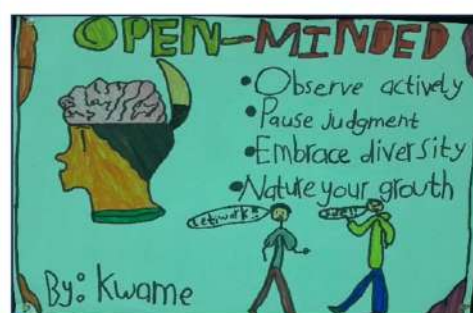 OPEN-MINDED
•Observe actively
•Pause judgment
•Embrace diversity
•Nature your grouth
Let's work!!
By: Kwame